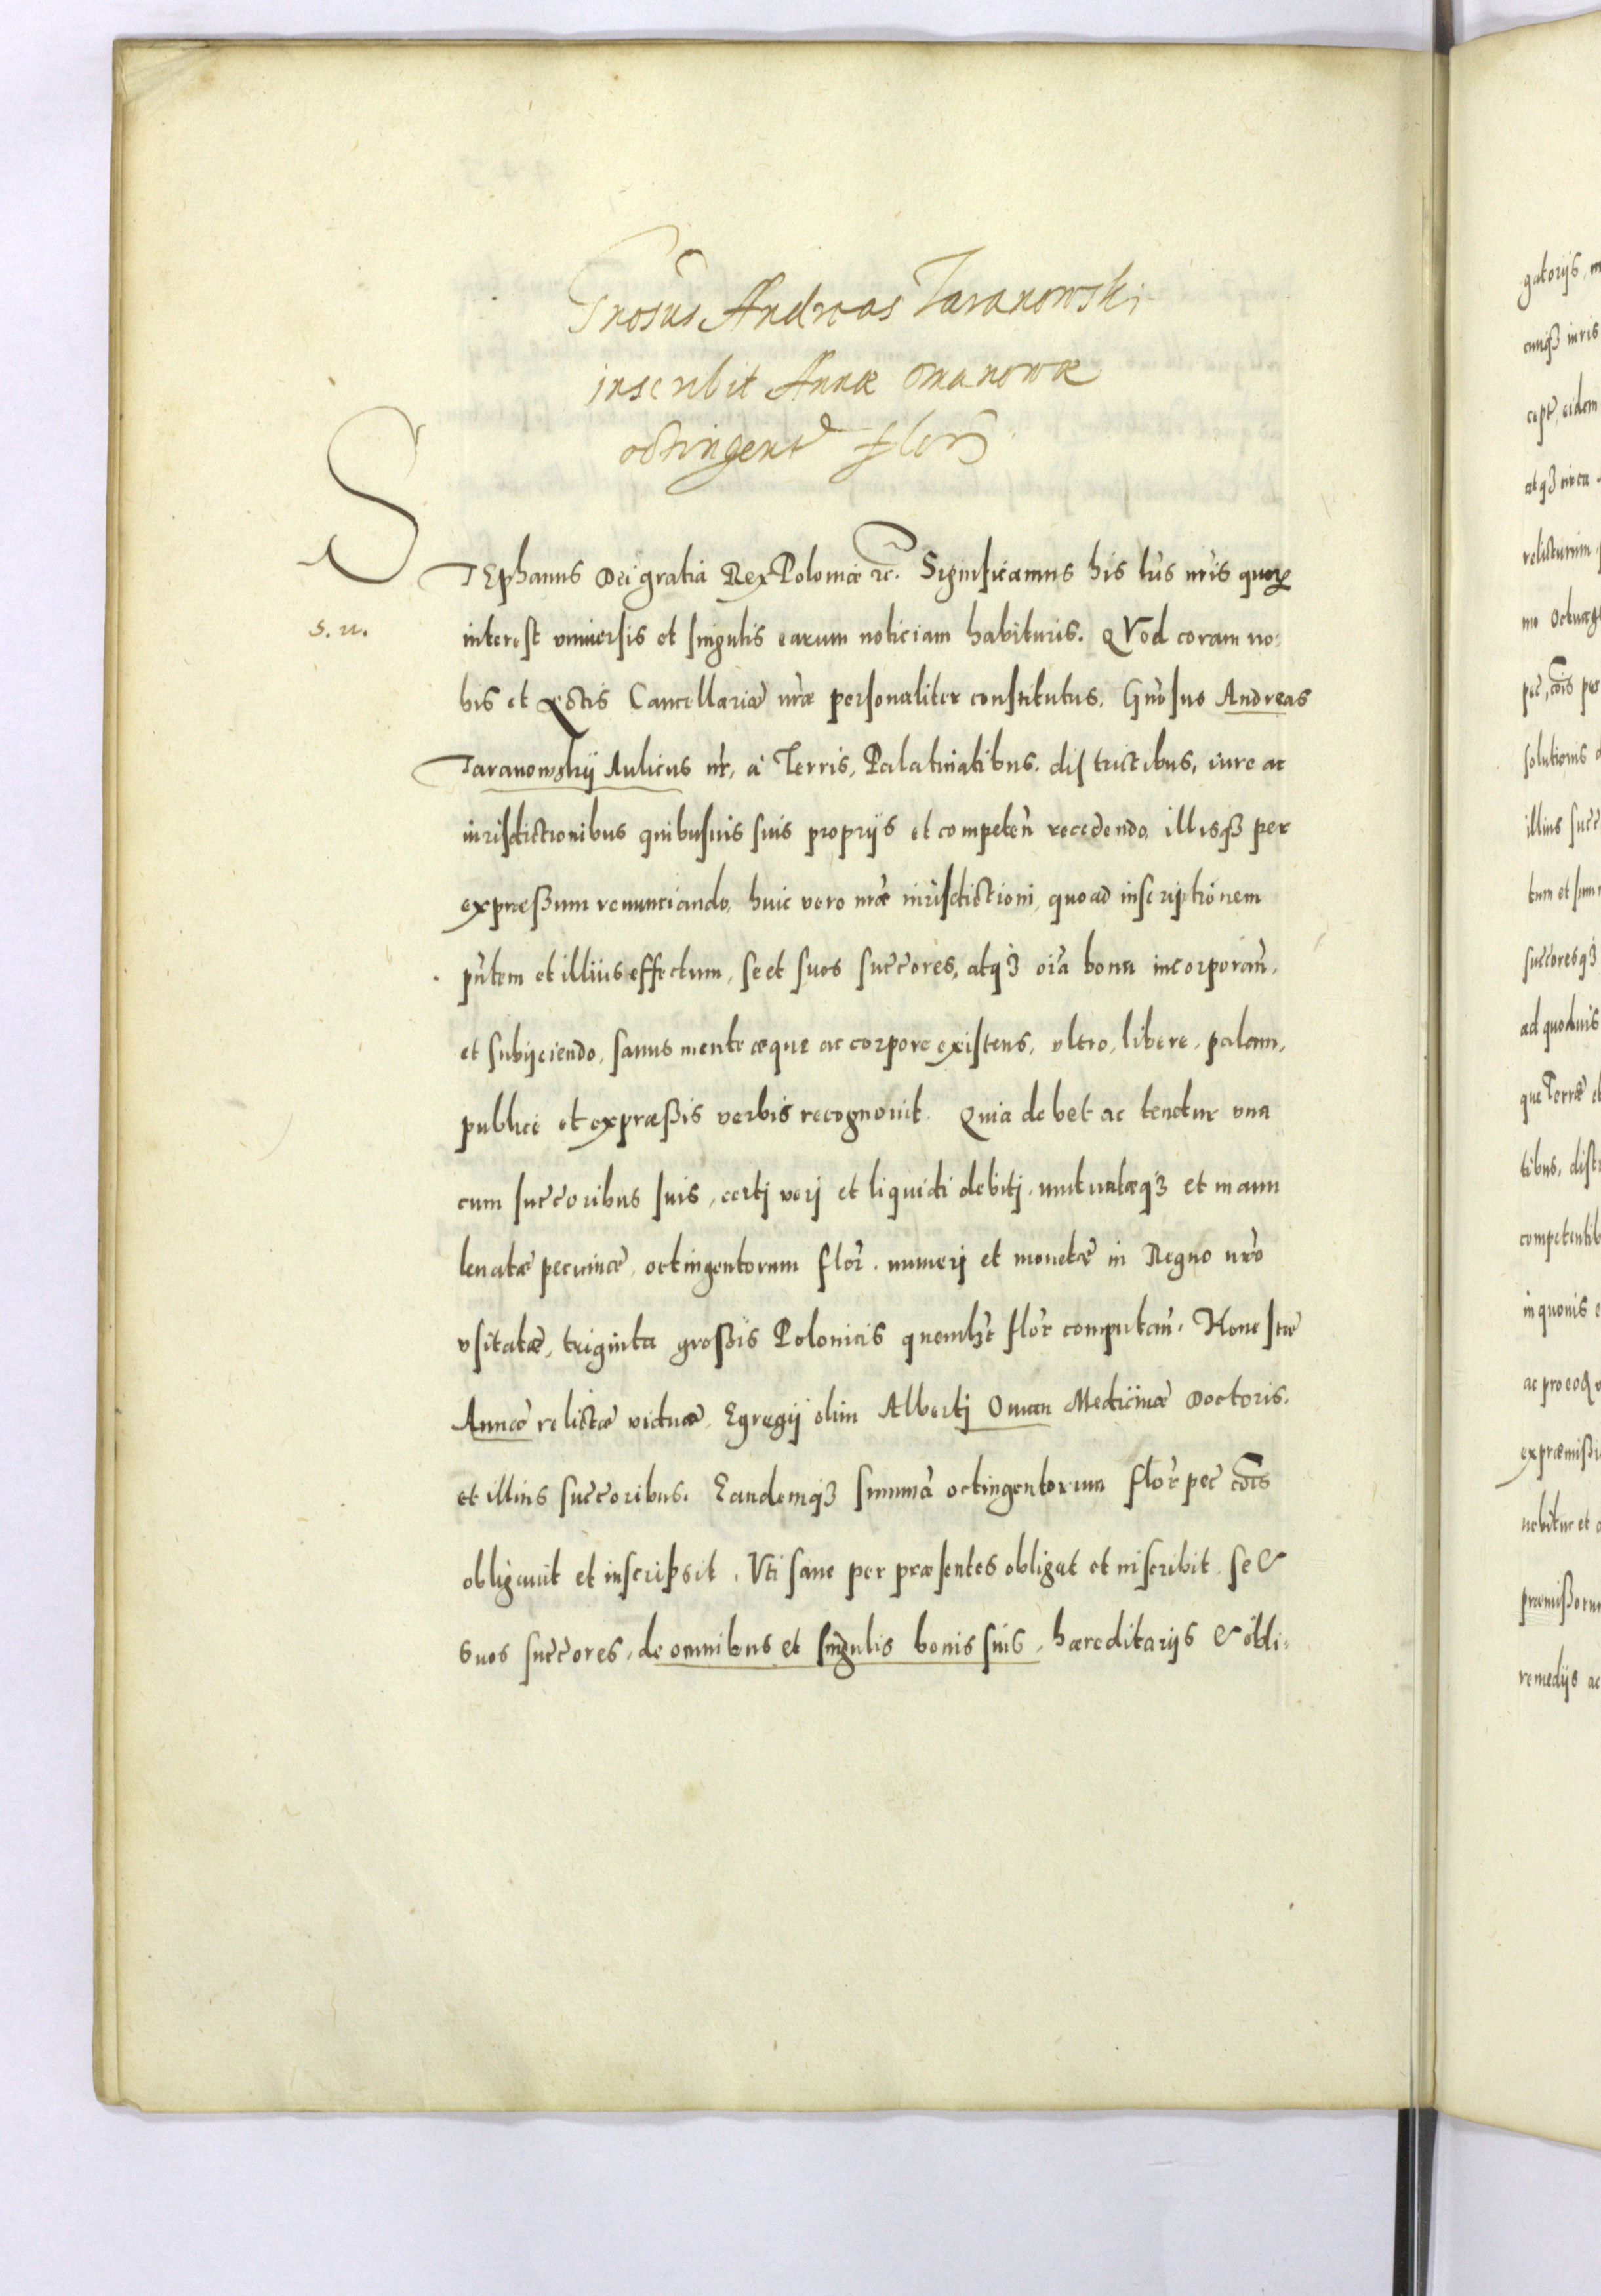 Gnosus Andreas Taranowski
inscribit Annæ Omanowæ
octingent flor
STEphanus Dei gratia Rex Poloniæ etc. Significamus his lris nris quorum
s. n.
interest vniuersis et singulis earum noticiam habituris. QVod coram no:
bis et Actis Cancellariæ nræ personaliter constitutus, Gnosus Andreas
Taranowskij Aulicus nr, à Terris, Palatinatibus, districtibus, iure ac
iurisdictionibus quibusuis suis proprijs et competen recedendo, illisq3 per
expressum renunciando, huic vero nræ iurisdictioni, quoad inscriptionem
pntem et illius effectum, se et suos succores, atq3 oia bona incorporan,
et subijciendo, sanus mente æque ac corpore existens, vltro, libere, palam,
publice et expræssis verbis recognouit. Quia debet ac tenetur vna
cum succoribus suis, certj verj et liquidi debitj, mutuatæq3 et manu
leuatæ pecuniæ, octingentorum flor. numerj et monetæ in Regno nro
vsitatæ, triginta grossis Polonicis quemlibet flor computan. Honestæ
Annæ relictæ viduæ, Egregij olim Albertj Oman Medicinæ Doctoris,
et illius succoribus. Eandemq3 summã octingentorum flor pec cois
obligauit et inscripsit. Vti sane per præsentes obligat et inscribit, se &
suos succores, de omnibus et singulis bonis suis, hæreditarijs & obli=
gatorijs,
cunq3 iuris
cept, eidem
atq3 circa
relicturum
mo Octuag
pec, cois per
solutionis
illius succ
tum et sum
succoresq3
ad quoduis
que Terræ et
tibus, distr
competentib
in quouis
ac pro eoq
ex præmissi
nebitur et
præmissorum
remedijs ac